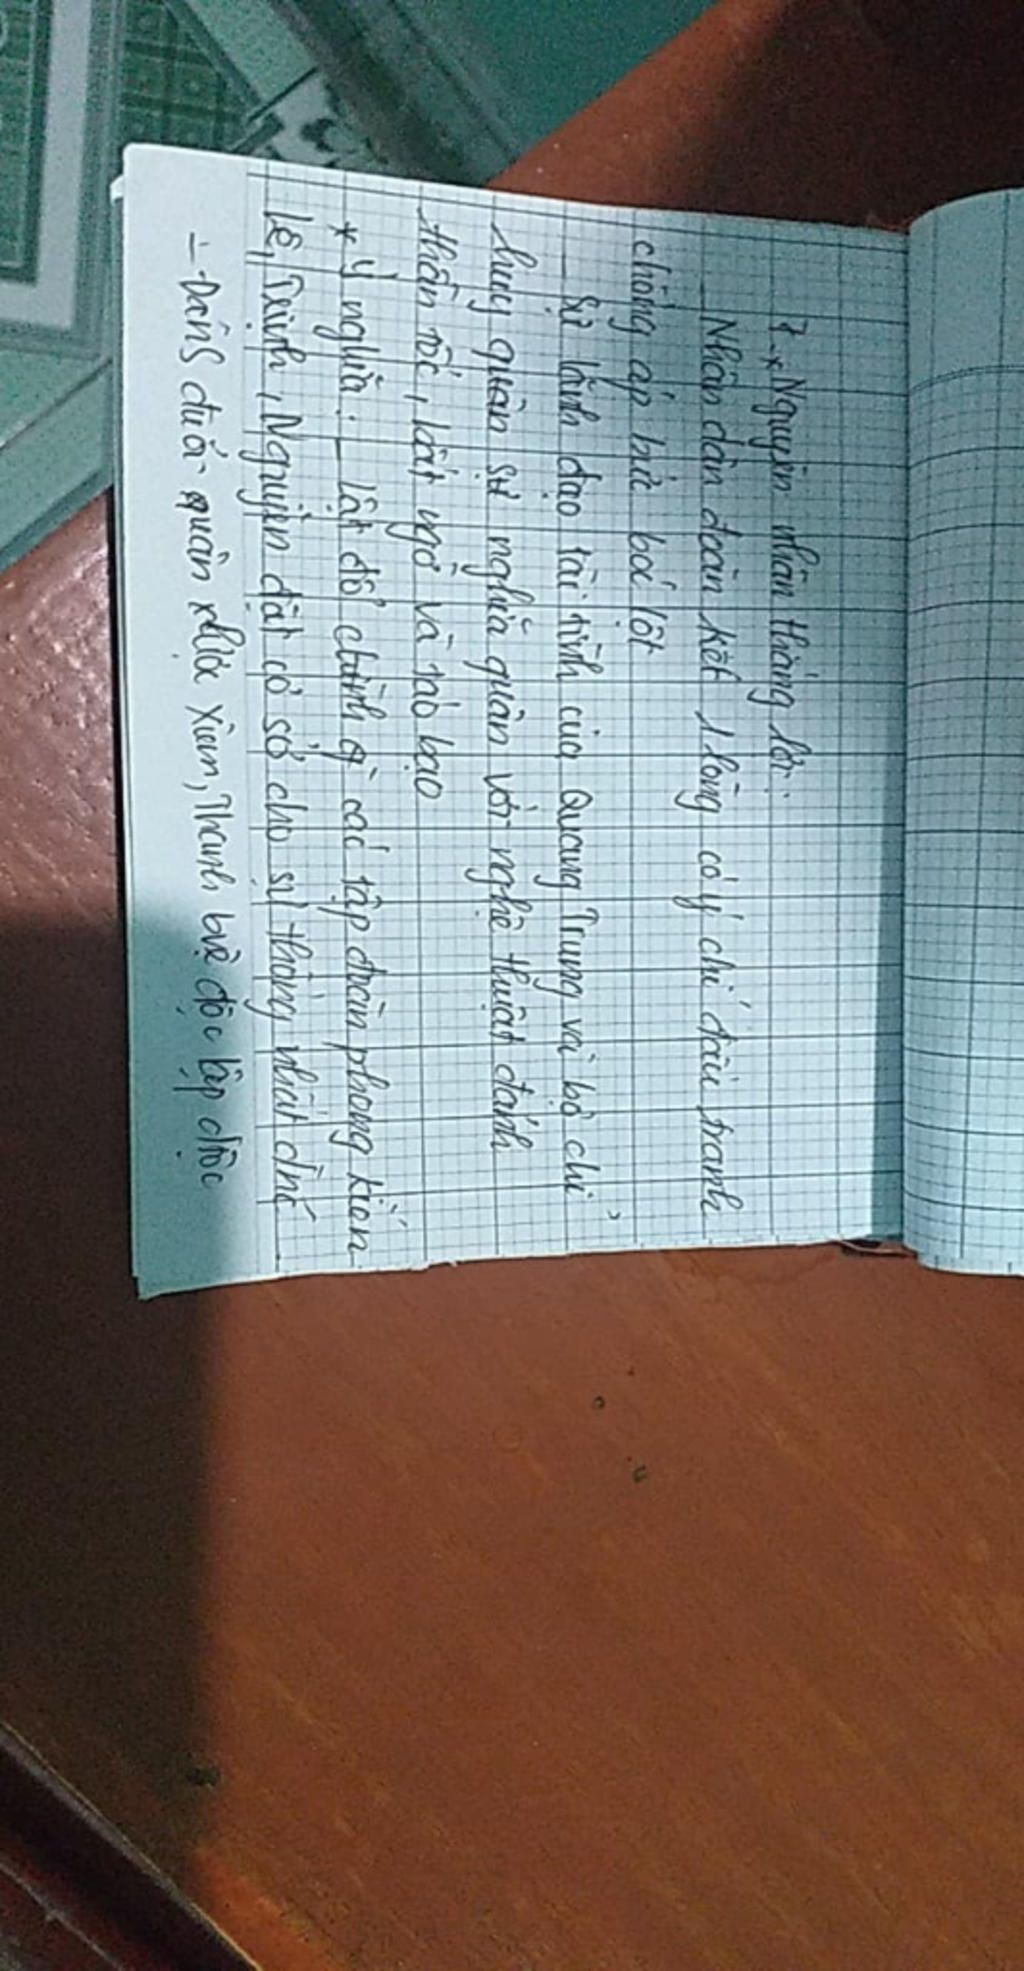 7. * Nguyên nhân thắng lợi:
_ Nhân dân đoàn kết 1 lòng có ý chí đấu tranh
chống áp bức bóc lột
_ Sự lãnh đạo tài tình của Quang Trung và bộ chỉ
huy quân sự nghĩa quân với nghệ thuật đánh
thần tốc, bất ngờ và táo bạo
* Ý nghĩa: _ lật đổ chính q các tập đoàn phong kiến
Lê, Trịnh, Nguyễn đặt cơ sở cho sự thống nhất đnc
- Đánh đuổi quân xlược Xiêm, Thanh bvệ độc lập dtộc